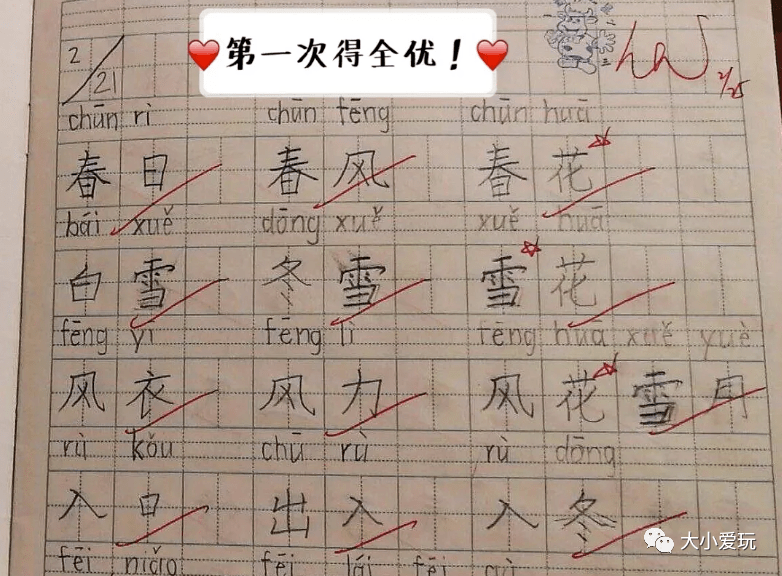 第一次得全优！
2/21
2/25
chūn rì chūn fēng chūn huā
春日 春风 春花
bái xuě dōng xuě xuě huā
白雪 冬雪 雪花
fēng yī fēng lì fēng hua xuě yuè
风衣 风力 风花雪月
rù kǒu chū rù rù dōng
入日 出入 入冬
fēi niǎo fēi lái fēi
大小爱玩